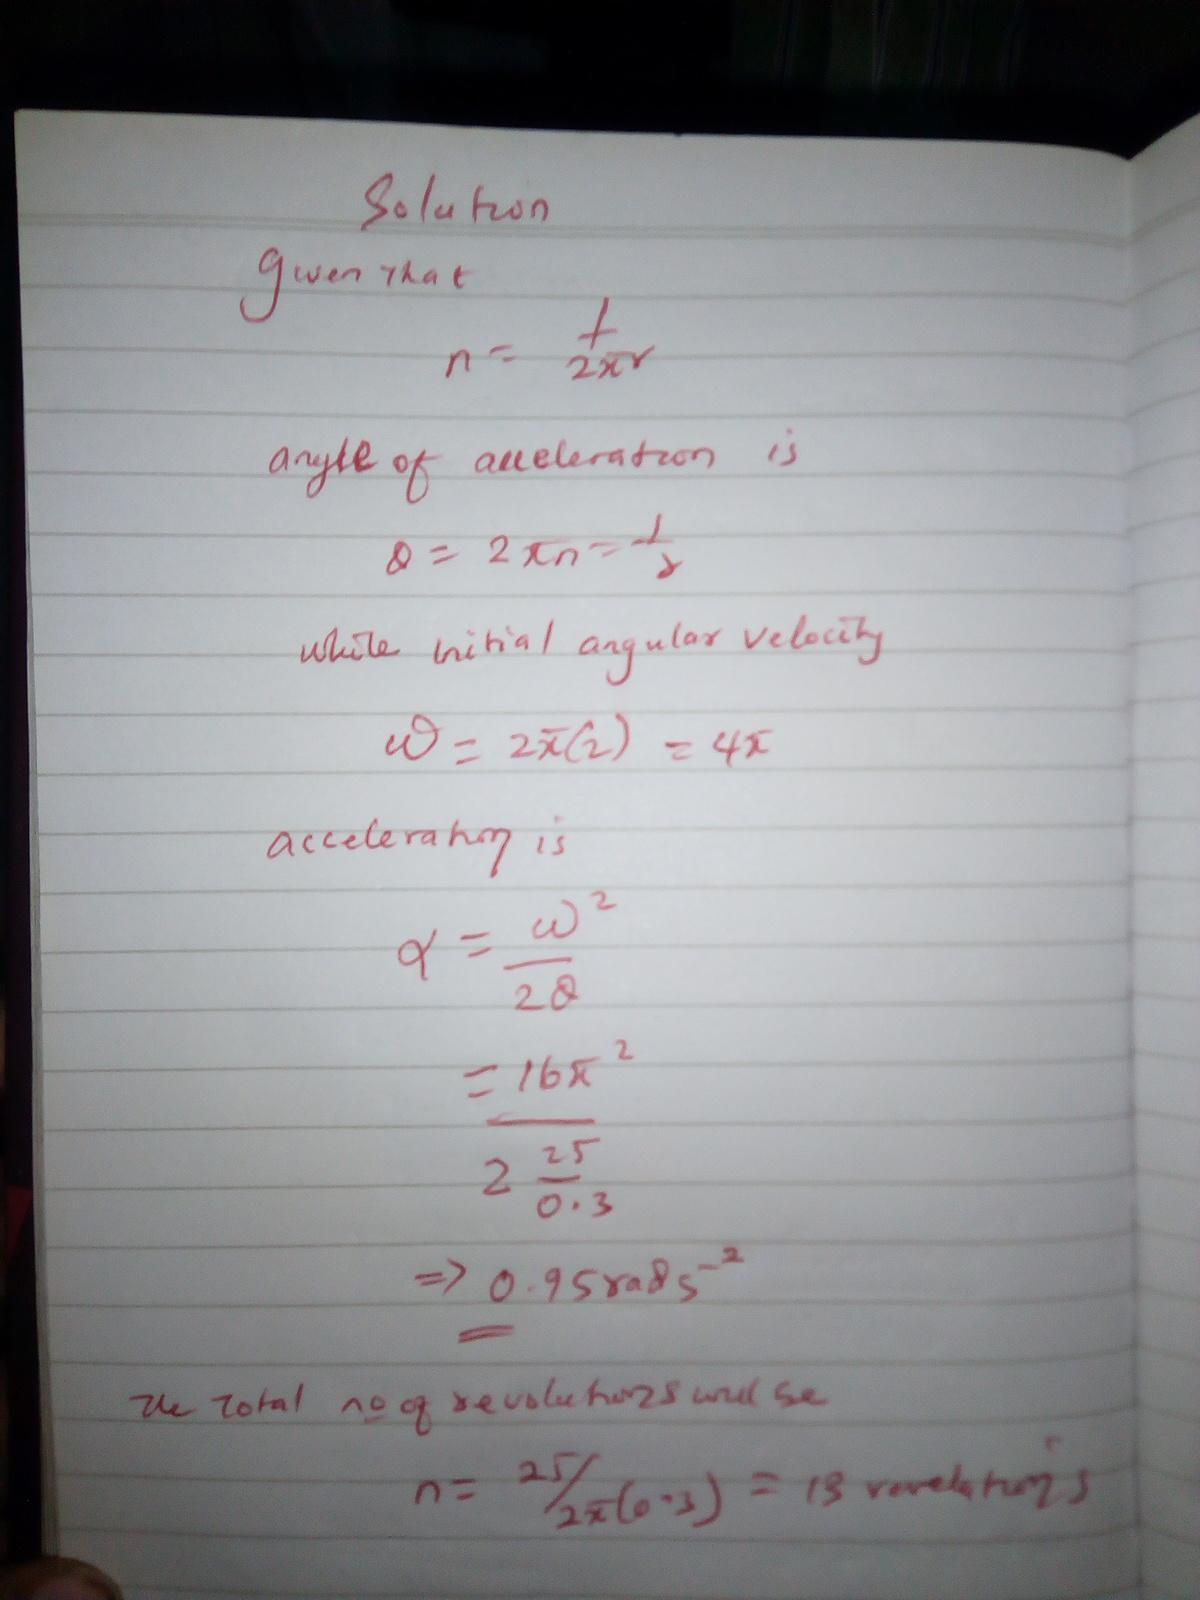 Solution
Given that
n = l/2πr
angle of acceleration is
θ = 2πn = l/r
while initial angular velocity
ω = 2π(2) = 4π
acceleration is
α = ω²/2θ
= 16π²/2 25/0.3
=> 0.95rads⁻²
The Total no of revolutions will be
n = 25/2π(0.3) = 13 revolutions